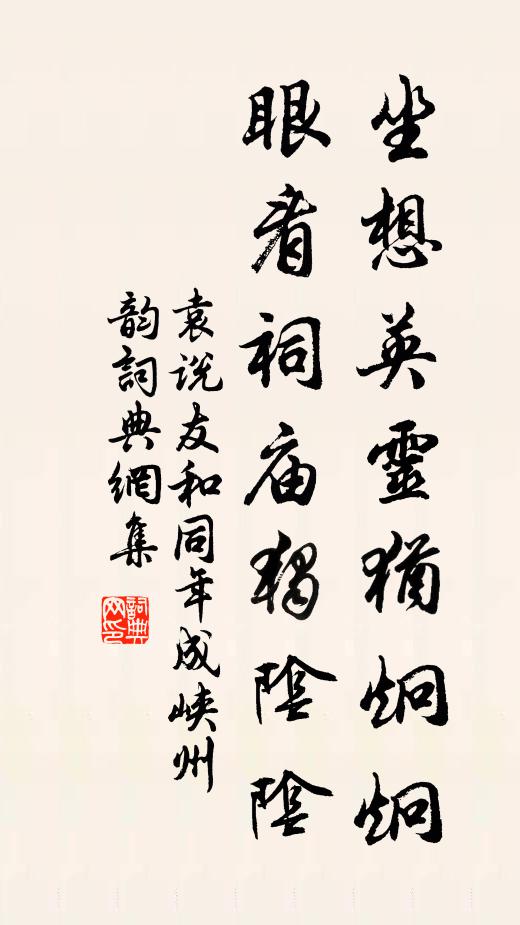 坐想英靈猶炯炯
眼看祠庙独陰陰
袁说友和同年成峡州
韵詞典網集
詞典
网印